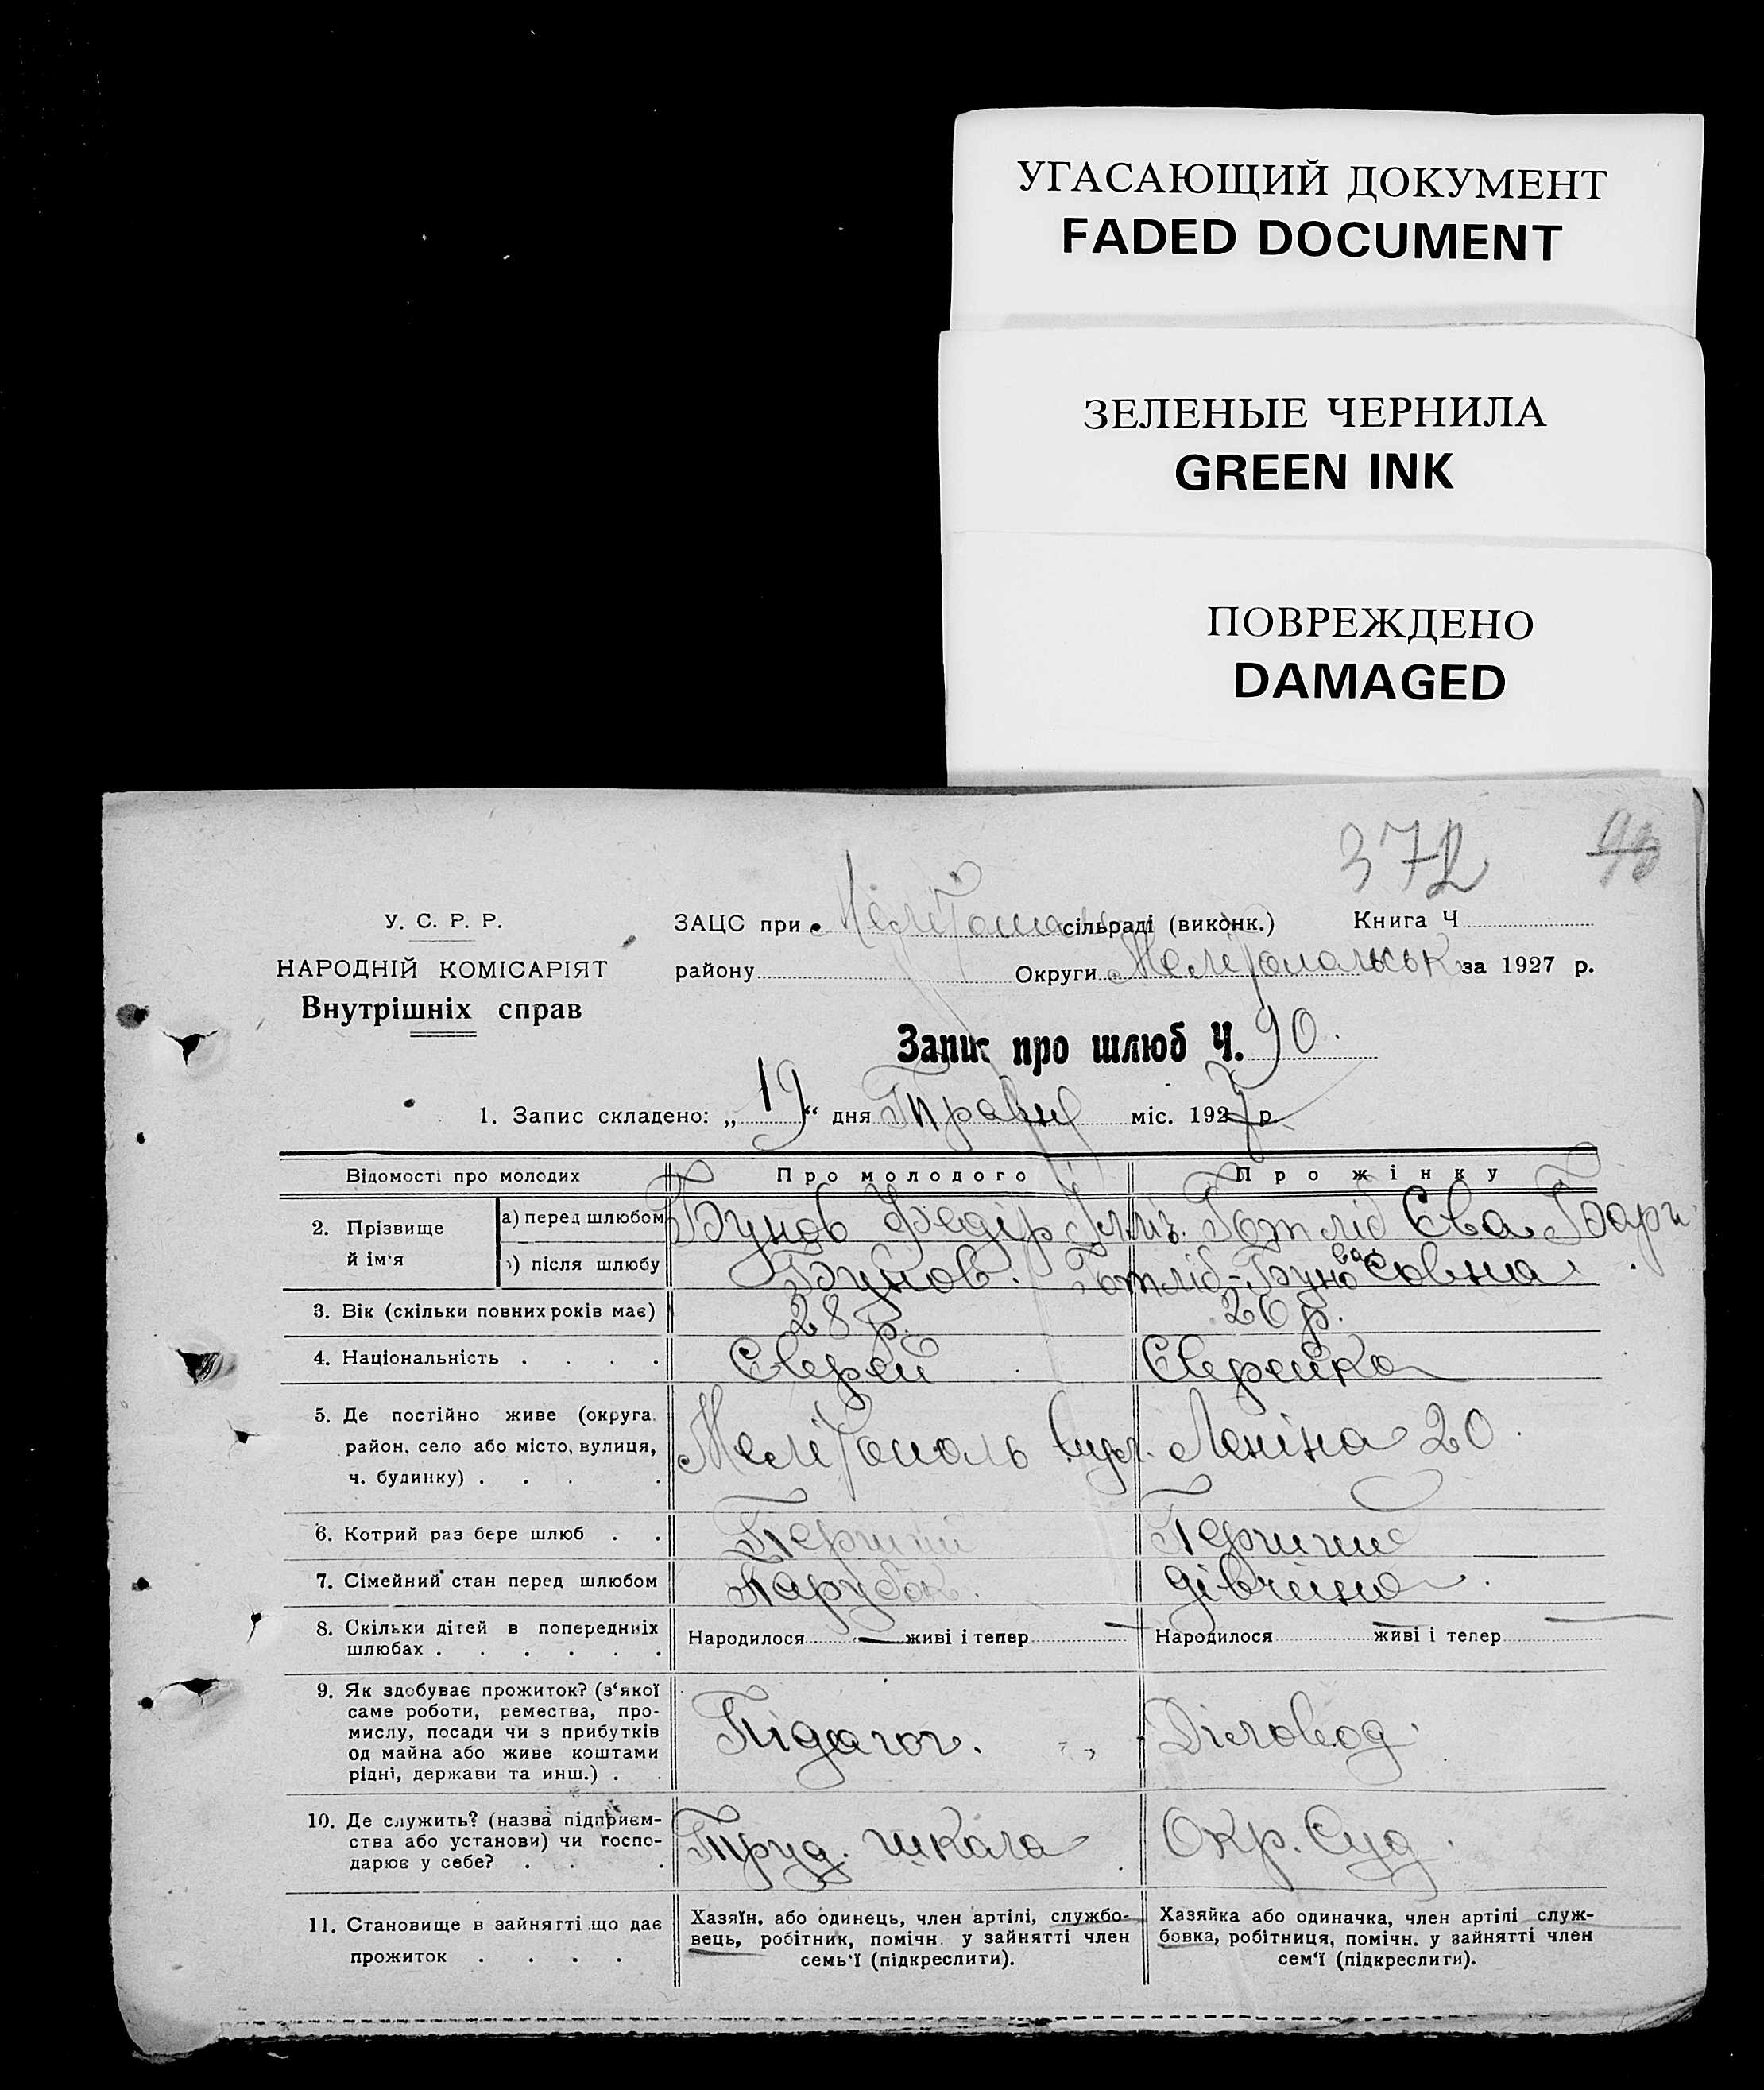 УГАСАЮЩИЙ ДОКУМЕНТ
FADED DOCUMENT
ЗЕЛЕНЫЕ ЧЕРНИЛА
GREEN INK
ПОВРЕЖДЕНО
DAMAGED
372
У. С. Р. Р.
НАРОДНІЙ КОМІСАРІЯТ
Внутрішніх справ
ЗАЦС при сільраді (виконк.) Книга Ч
району Округи Мелітопольськ за 1927 р.
Запис про шлюб Ч. 90.
1. Запис складено: „19“ дня Травня міс. 1927 р.
Відомості про молодих Про молодого Про жінку
2. Прізвище й ім‘я а) перед шлюбом Бунов Федір Готліб Єва Бори
б) після шлюбу Бунов. Готліб-Бунова совна
3. Вік (скільки повних років має) 28 р. 26 р.
4. Національність . . . . Єврей Єврейка
5. Де постійно живе (округа,
район, село або місто, вулиця,
ч. будинку) . . . . Мелітополь вул. Леніна 20.
6. Котрий раз бере шлюб . . Перший Перший
7. Сімейний стан перед шлюбом Парубок. дівчина.
8. Скільки дітей в попередніх
шлюбах . . . . . .
Народилося — живі і тепер — Народилося — живі і тепер —
9. Як здобуває прожиток? (з‘якої
саме роботи, ремества, про-
мислу, посади чи з прибутків
од майна або живе коштами
рідні, держави та инш.) . .
Підагог. Діловод.
10. Де служить? (назва підприєм-
ства або установи) чи госпо-
дарює у себе? . . .
Труд. школа Окр. Суд.
11. Становище в зайнятті що дає
прожиток . . . .
Хазяїн, або одинець, член артілі, службо-
вець, робітник, помічн. у зайнятті член
семь‘ї (підкреслити).
Хазяйка або одиначка, член артілі служ-
бовка, робітниця, помічн. у зайнятті член
сем‘ї (підкреслити).